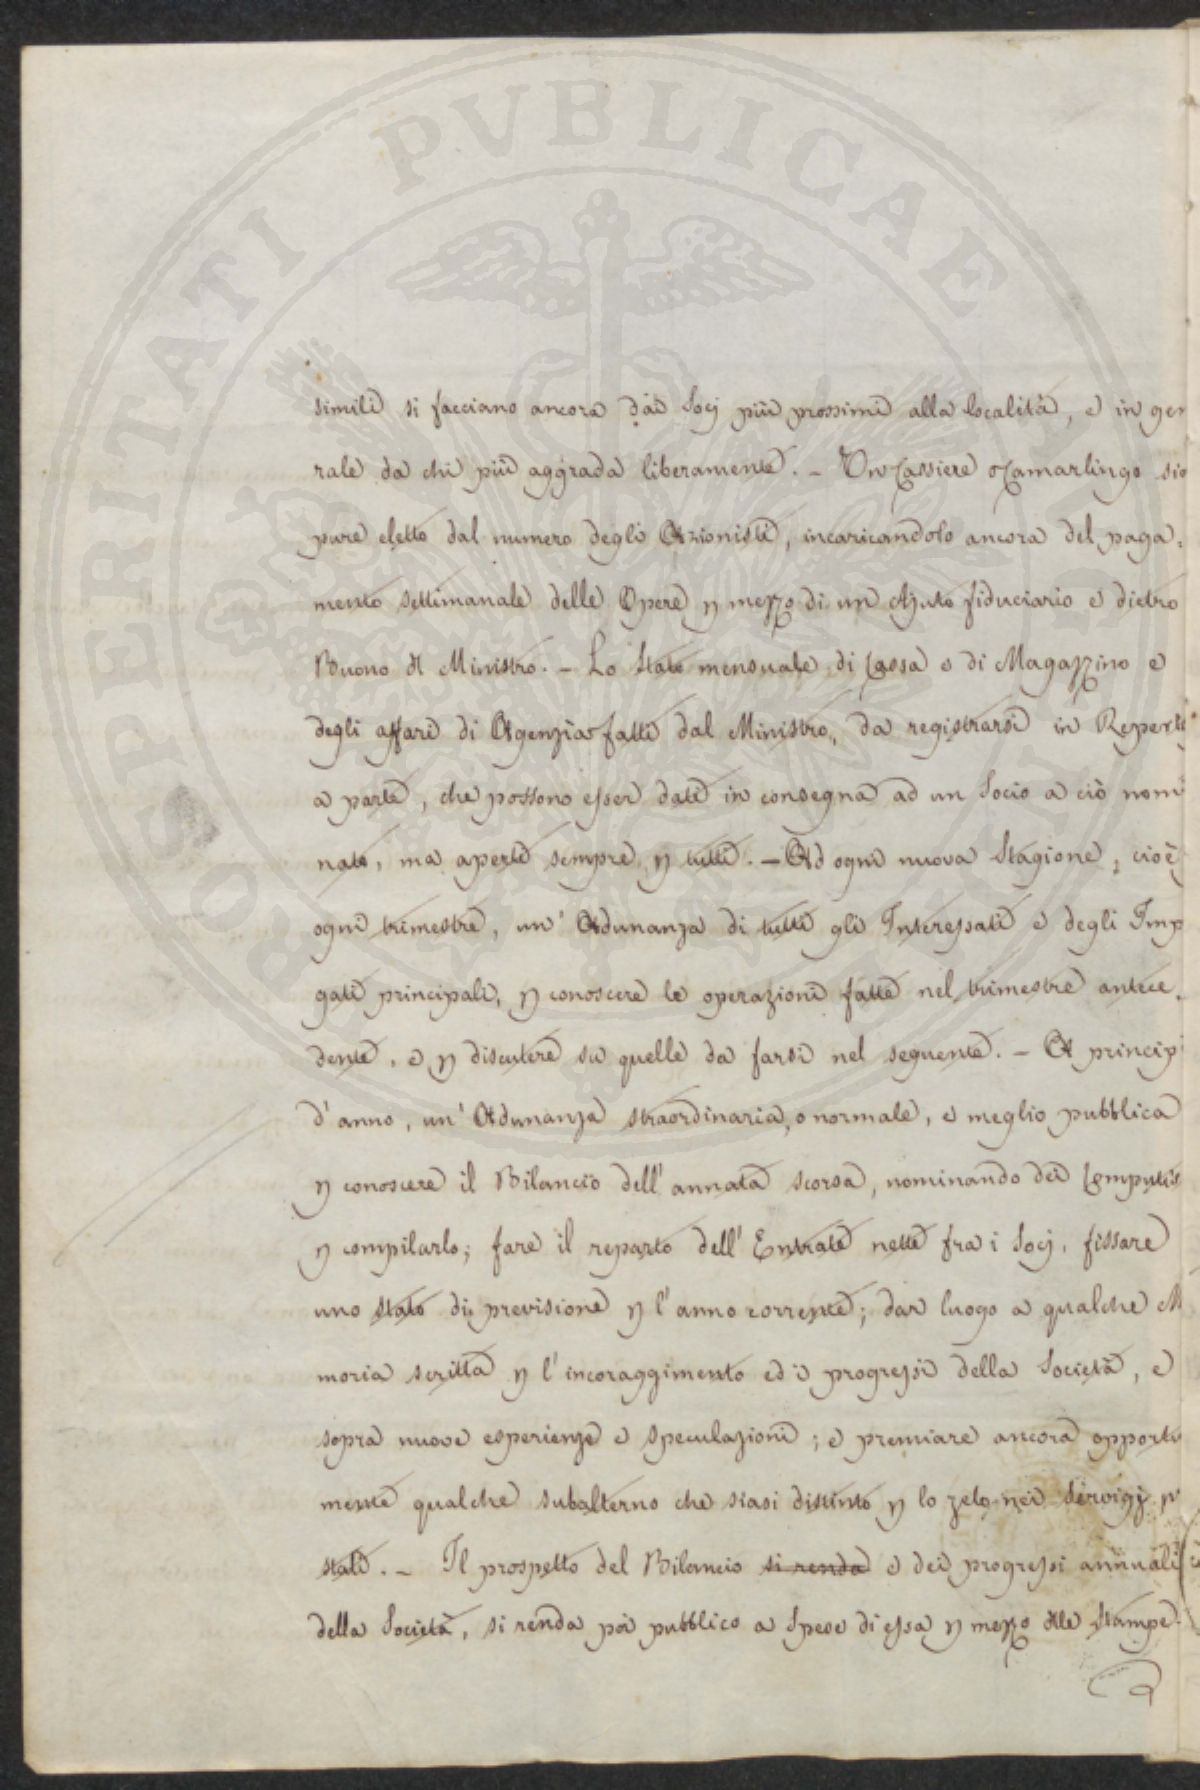 PROSPERITATI PVBLICAE
simili si facciano ancora dai Socj più prossimi alla località, e in gen
rale da chi più aggrada liberamente. - Un Cassiere o Camarlingo sia
pure eletto dal numero degli Azionisti, incaricandolo ancora del paga-
mento settimanale delle Opere p mezzo di un Ajuto fiduciario e dietro
Buono del Ministro. - Lo Stato mensuale di Cassa e di Magazzino e
degli affari di Agenzia fatti dal Ministro, da registrarsi in Reperti
a parte, che possono esser dati in consegna ad un Socio a ciò nomi
nato, ma aperti sempre p tutti. - Ad ogni nuova Stagione, cioè
ogni trimestre, un' Adunanza di tutti gli Interessati e degli Imp
gati principali, p conoscere le operazioni fatte nel trimestre antece-
dente, e p discutere su quelle da farsi nel seguente. - A princip
d'anno, un' Adunanza straordinaria, o normale, e meglio pubblica
p conoscere il Bilancio dell' annata scorsa, nominando dei Computis
p compilarlo; fare il reparto dell' Entrate nette fra i Socj, fissare
uno stato di previsione p l'anno corrente; dar luogo a qualche M
moria scritta p l' incoraggimento ed i progressi della Società, e
sopra nuove esperienze e speculazioni; e premiare ancora opportu
mente qualche subalterno che siasi distinto p lo zelo nei servigj p
stati. - Il prospetto del Bilancio si renda e dei progressi annuali
della Società, si renda poi pubblico a spese di essa p mezzo delle Stampe.